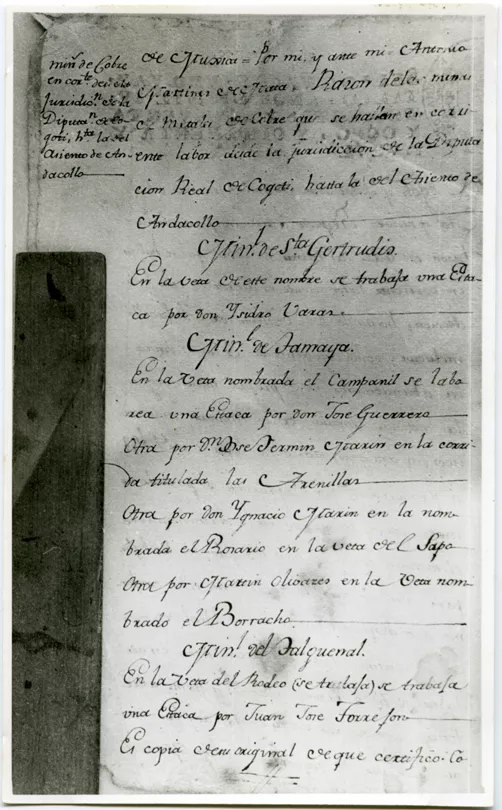 min.s de Cobre
en cor.te desde la
Juridic.n de la
Diputa.n de Co-
goti, h.ta la del
Asiento de An-
dacollo
de Por mi, y ante mi Antonio
Martinez de Mata. Razon de las minas
de Metales de Cobre que se hallan en corri-
ente labor desde la jurisdiccion de la Diputa
cion Real de Cogoti, hasta la del Asiento de
Andacollo
Min.l de S.ta Gertrudis.
En la veta de este nombre se trabaja una Esta-
ca por don Ysidro Varas.
Min.l de Tamaya.
En la Veta nombrada el Campanil se labo
rea una Estaca por don Jose Guerrero
Otra por D.n Jose Fermin Marin en la corri-
da titulada las Arenillas
Otra por don Ygnacio Marin en la nom-
brada el Rosario en la veta del Sapo
Otra por Martin Olivares en la Veta nom-
brado el Borracho
Min.l del Talquenal.
En la Veta del Rodeo (se trabaja) se trabaja
una Estaca por Juan Jose Torrejon
Es copia de su original de que certifico. Co-